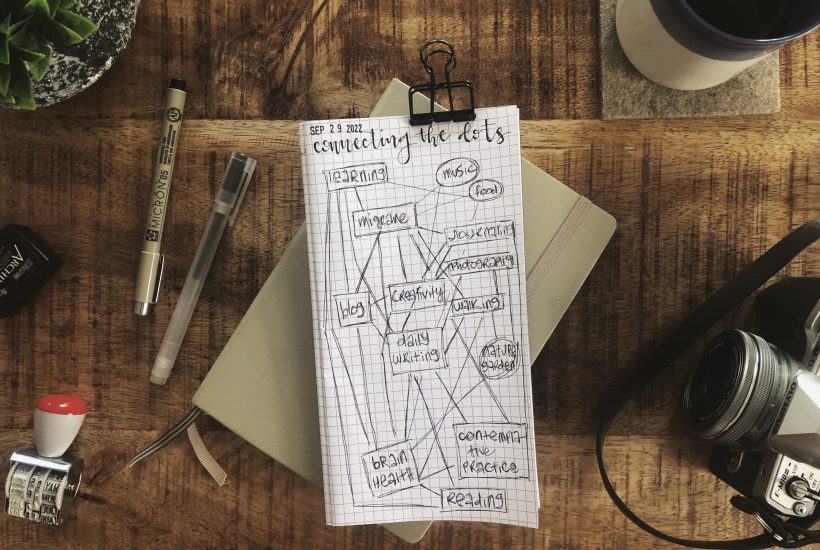 SEP 29 2022
connecting the dots
learning
music
food
migrane
Journaling
photography
creativity
walking
blog
daily
writing
nature
garden
brain
health
contempla-
tive
practice
reading
MICRON 05